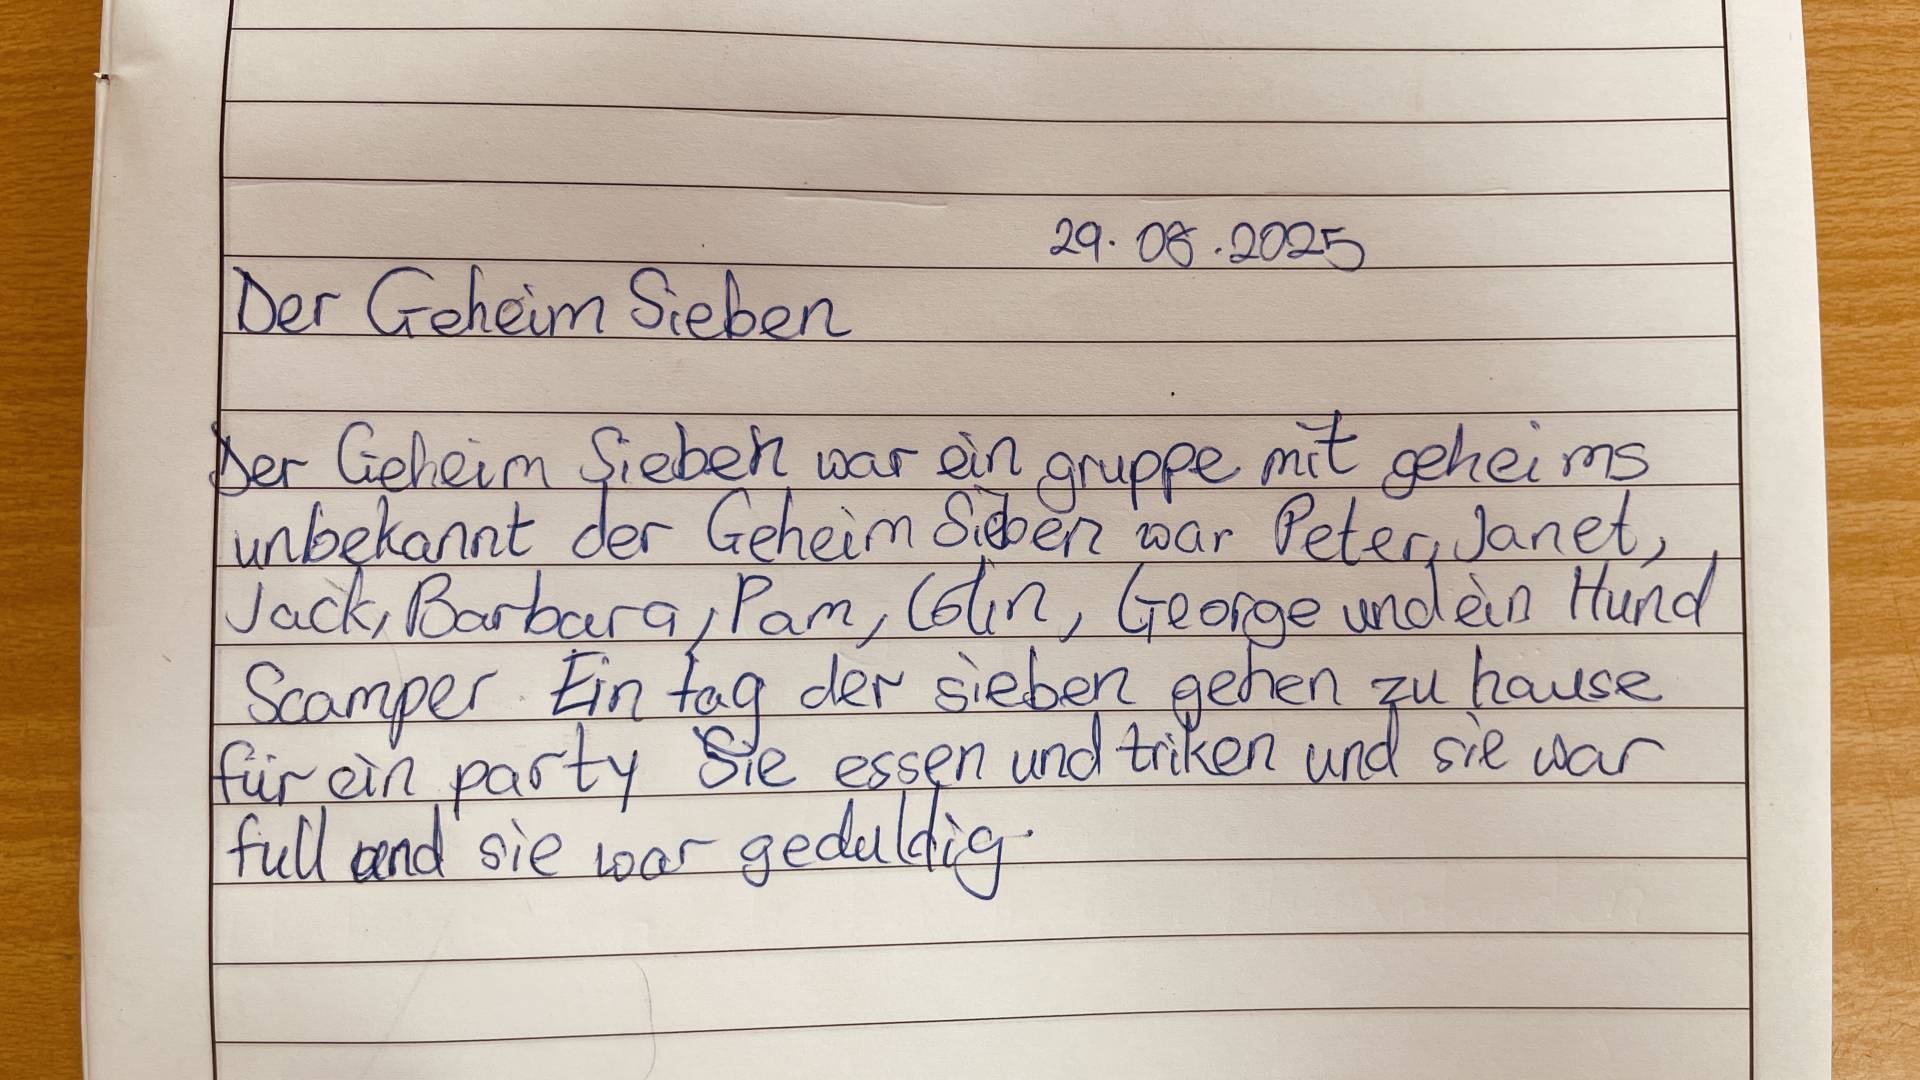 29.08.2025
Der Geheim Sieben
Der Geheim Sieben war ein gruppe mit geheims
unbekannt der Geheim Sieben war Peter, Janet,
Jack, Barbara, Pam, Colin, George und ein Hund
Scamper. Ein tag der sieben gehen zu hause
für ein party Sie essen und triken und sie war
full und sie war geduldig.